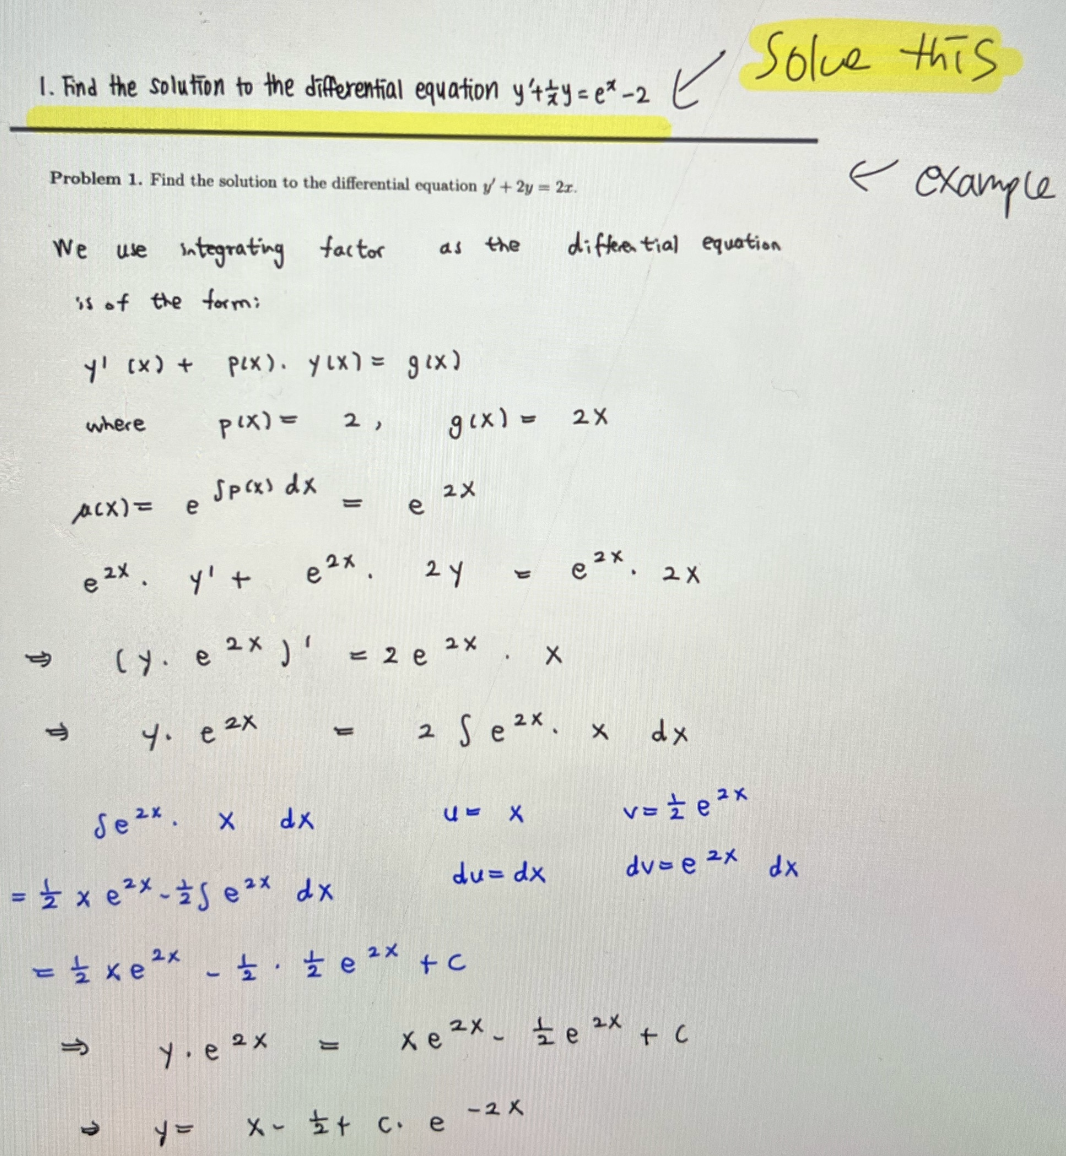 Solve this
1. Find the solution to the differential equation y'+1/x y = e^x -2
← example
Problem 1. Find the solution to the differential equation y′ + 2y = 2x.
We use integrating factor as the differential equation
is of the form:
y' (x) + p(x). y(x) = g(x)
where p(x) = 2, g(x) = 2x
μ(x) = e^∫p(x) dx = e^2x
e^2x. y' + e^2x. 2y = e^2x. 2x
⇒ (y. e^2x)' = 2e^2x . x
⇒ y. e^2x = 2 ∫e^2x. x dx
∫e^2x. x dx u = x v = 1/2 e^2x
du = dx dv = e^2x dx
= 1/2 x e^2x - 1/2 ∫ e^2x dx
= 1/2 x e^2x - 1/2 . 1/2 e^2x + C
⇒ y. e^2x = x e^2x - 1/2 e^2x + C
⇒ y = x - 1/2 + C. e^-2x